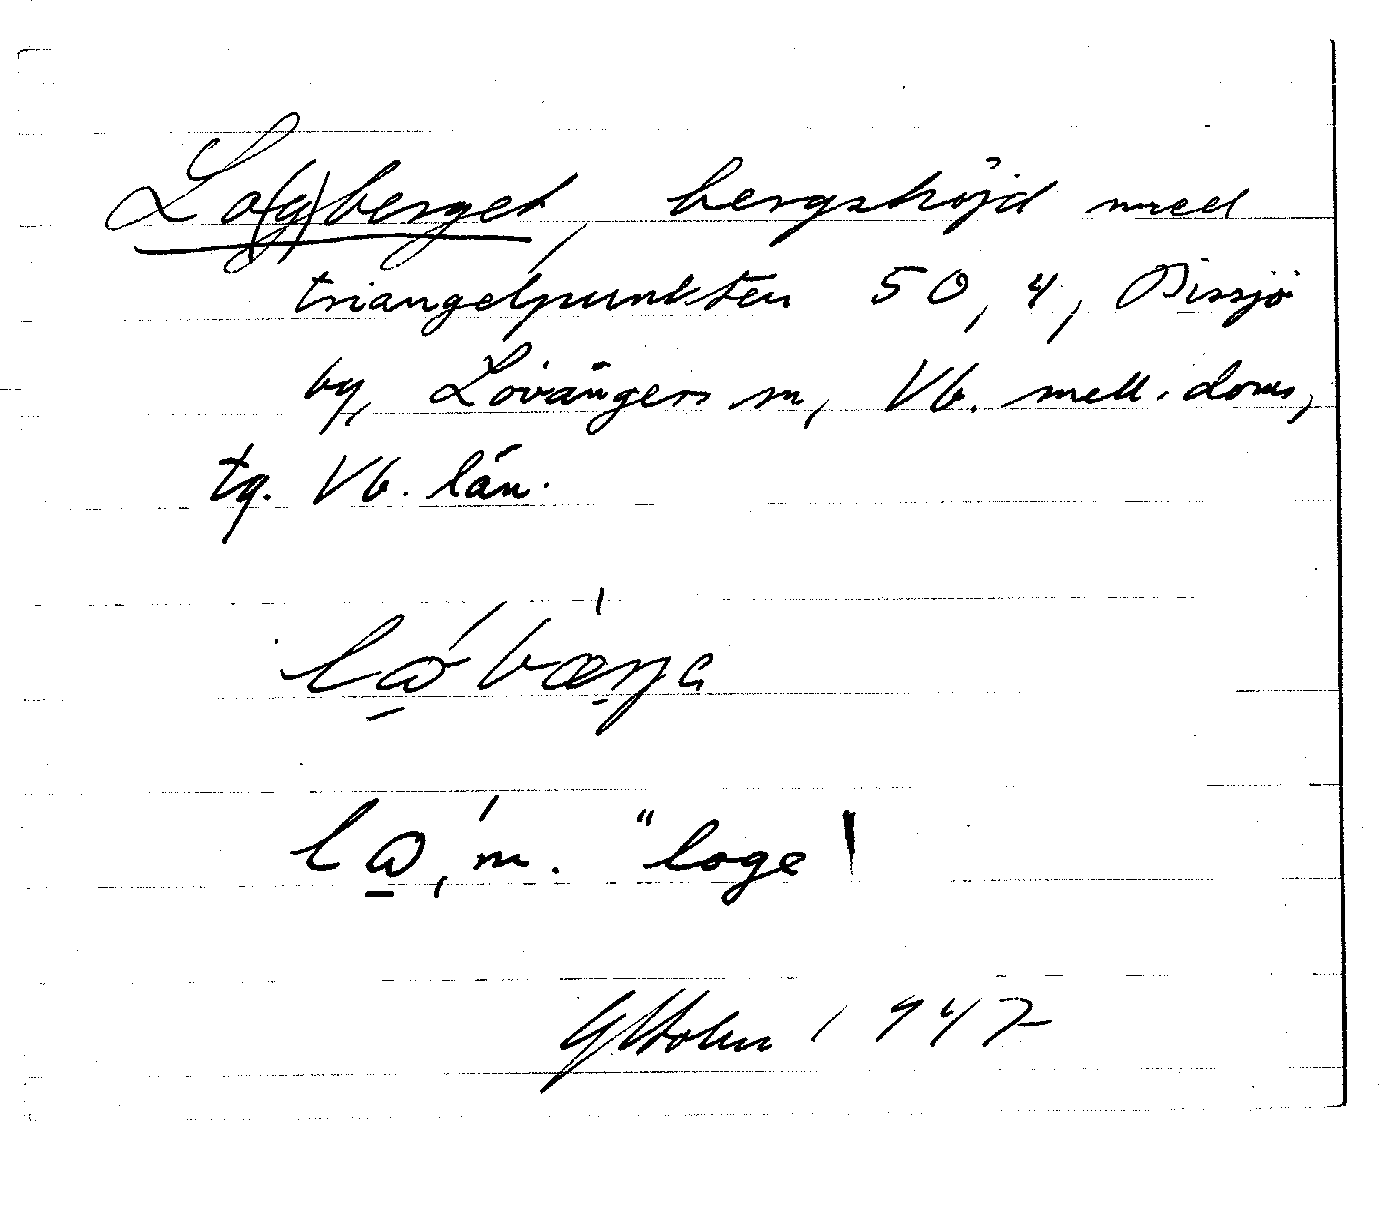 Lo(g)berget, bergshöjd med
triangelpunkten 50,4, Bissjö
by, Lövångers sn, Vb. mell. doms,
tg. Vb. län.
lǫ́bæŋa
lǫ́, m. "loge"
Holm 1947